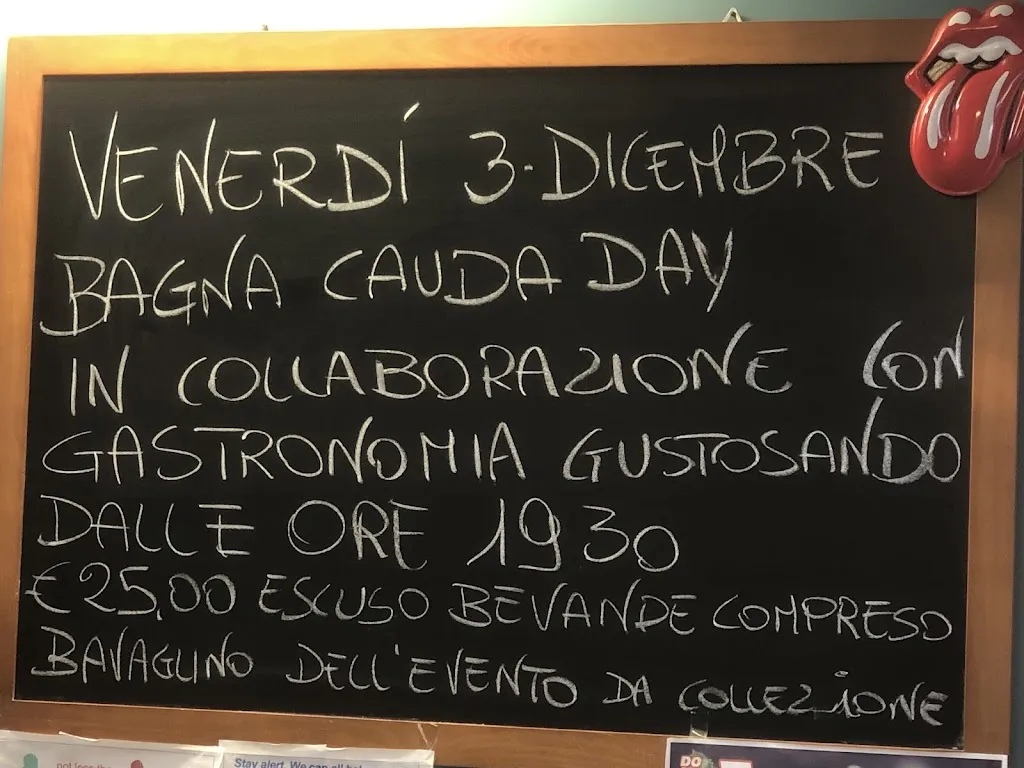 VENERDÍ 3·DICEMBRE
BAGNA CAUDA DAY
IN COLLABORAZIONE CON
GASTRONOMIA GUSTOSANDO
DALLE ORE 19 30
€ 25,00 ESCLUSO BEVANDE COMPRESO
BAVAGLINO DELL'EVENTO DA COLLEZIONE
not less than
Stay alert. We can all
DO